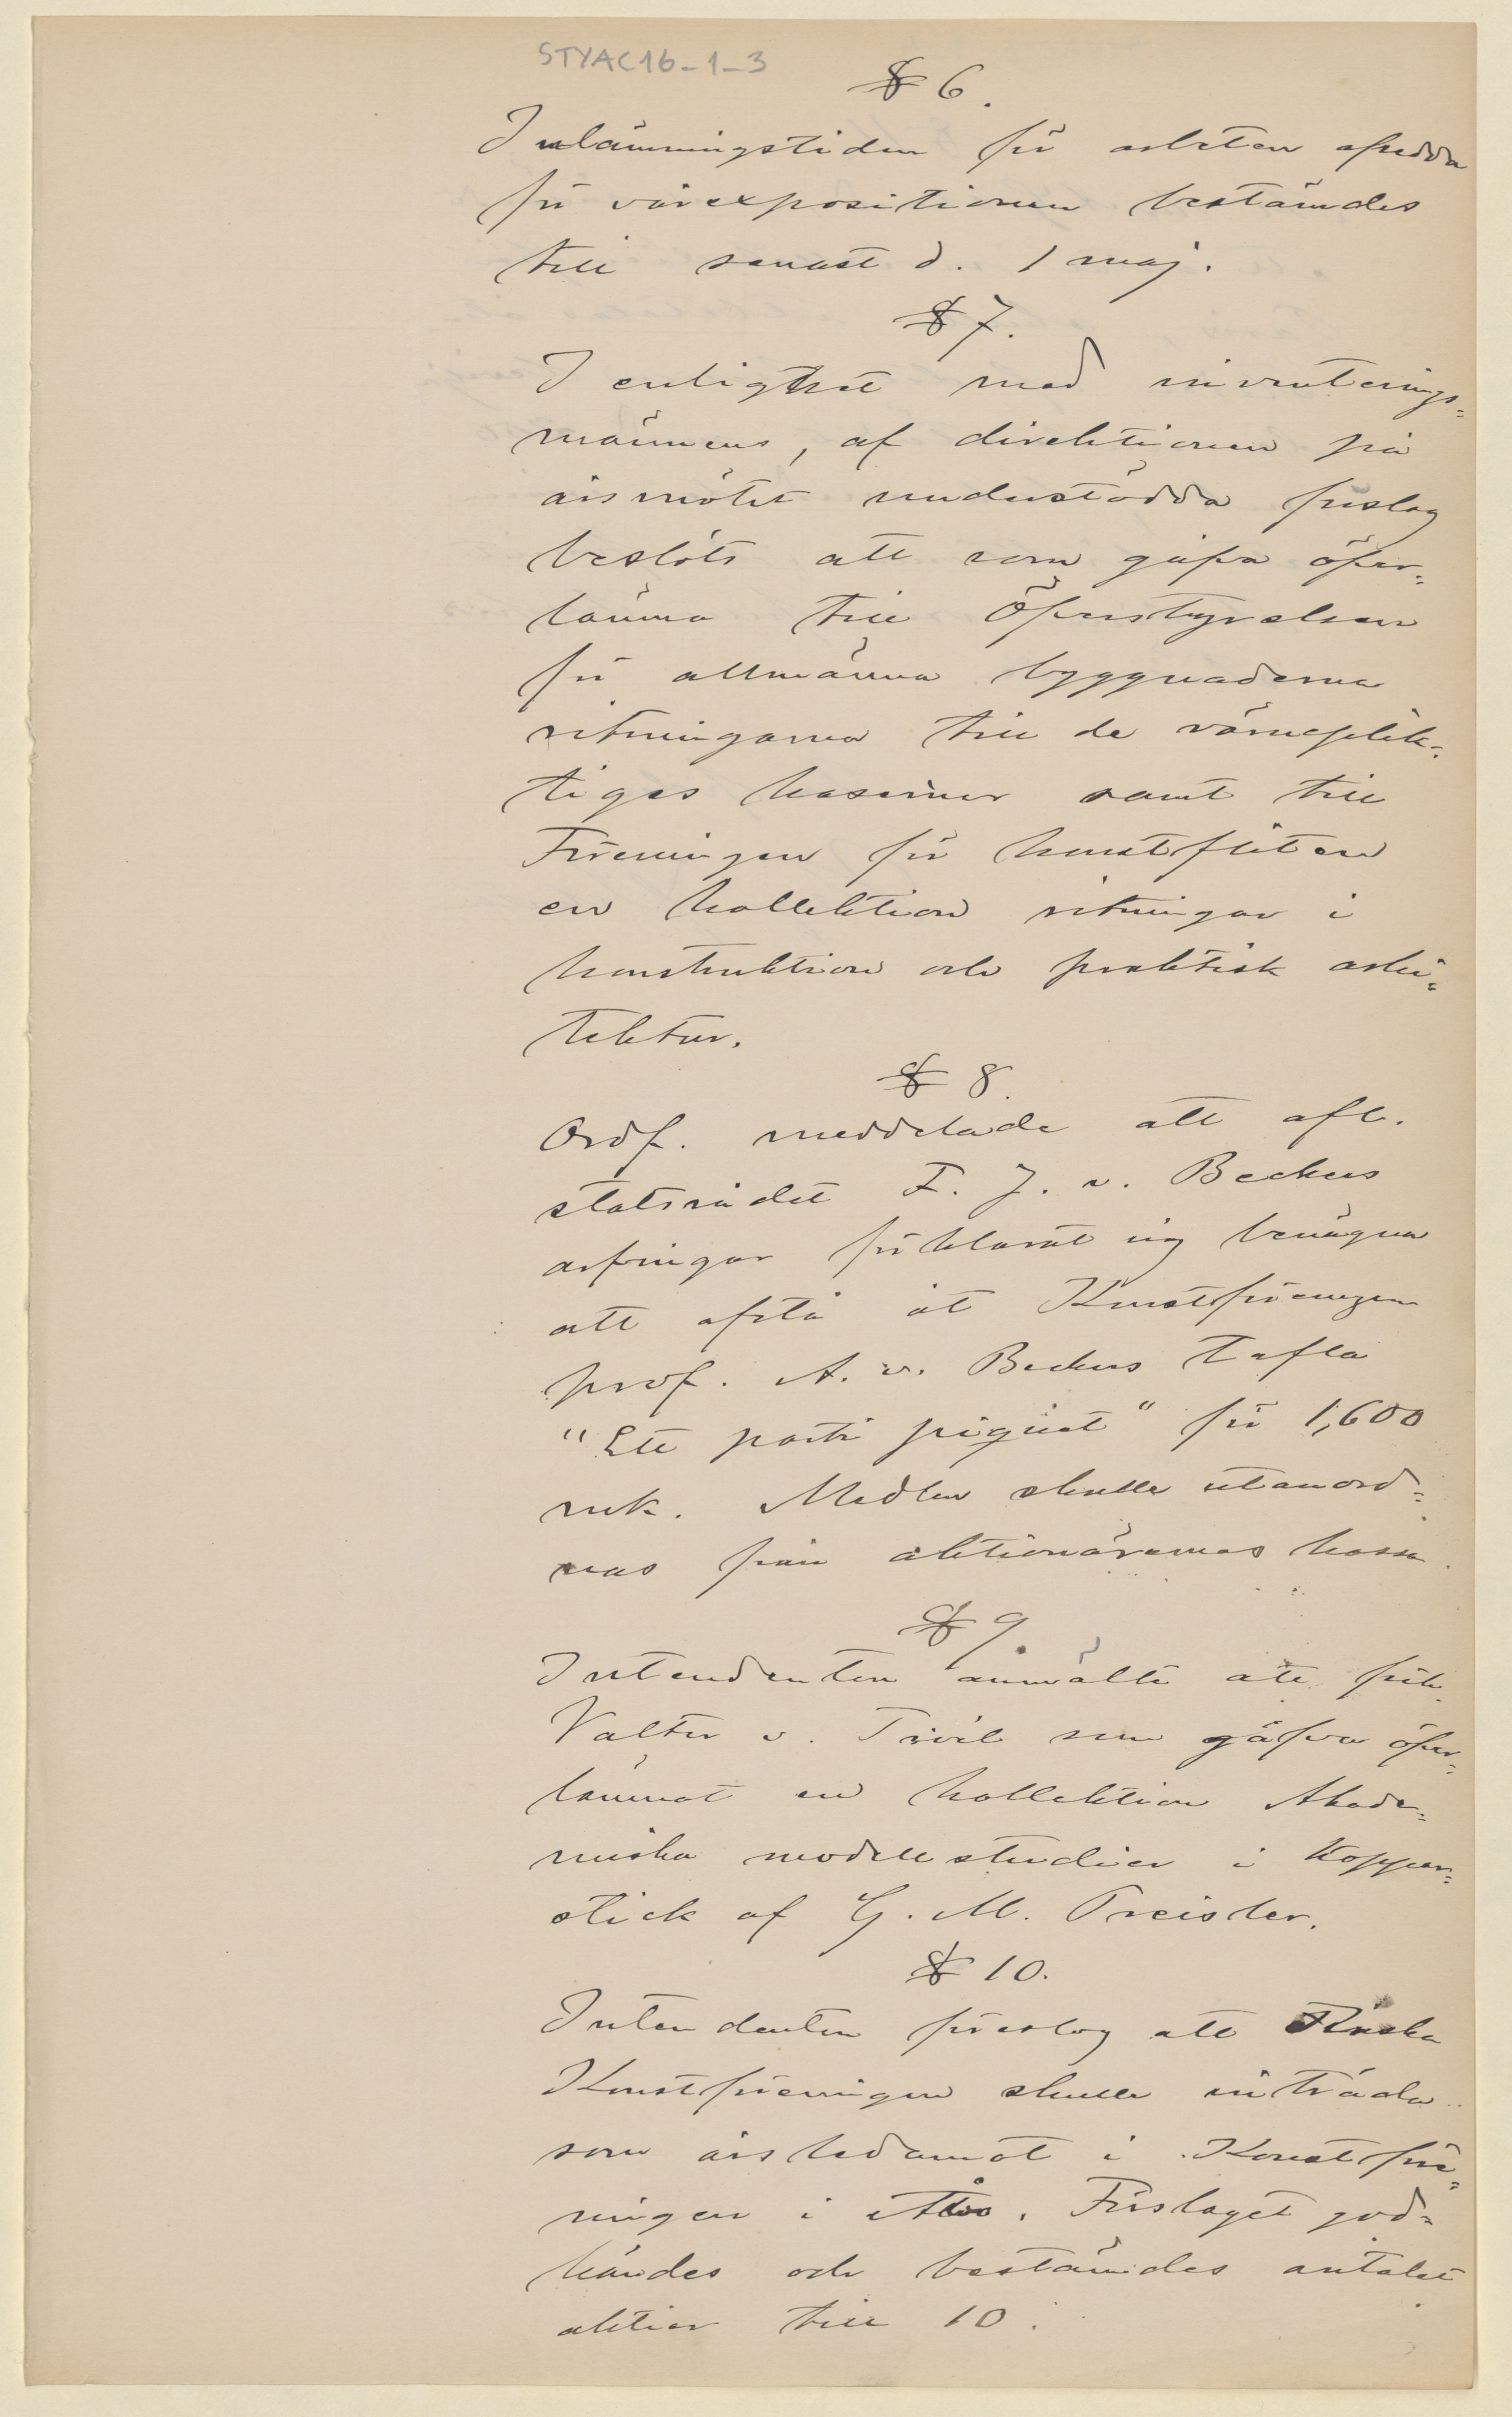 STYAC16-1-3
§ 6.
Inlämningstiden för arbeten afsedda
för vårexpositionen bestämdes
till senast d. 1 maj.
§ 7.
I enlighet med inventerings-
männens, af direktionen på
årsmötet understödda förslag
beslöts att som gåfva öfver-
lämna till Öfverstyrelsen
för allmänna byggnaderna
ritningarna till de värneplik-
tiges kaserner samt till
Föreningen för konstfliten
en kollektion ritningar i
konstruktion och praktisk arki-
tektur.
§ 8.
Ordf. meddelade att afl.
statsrådet F. J. v. Beckers
arfvingar förklarat sig benägna
att afstå åt Konstföreningen
prof. A. v. Beckers tafla
"Ett parti piquet" för 1,600
mk. Medlen skulle utanord-
nas från aktionärernas kassa.
§ 9.
Intendenten anmälte att frih.
Valter v. Troil som gåfva öfver-
lämnat en kollektion Akade-
miska modellstudier i koppar-
stick af G. M. Preisler.
§ 10.
Intendenten föreslog att Finska
Konstföreningen skulle inträda
som årsledamot i Konstföre-
ningen i Åbo. Förslaget god-
kändes och bestämdes antalet
aktier till 10.